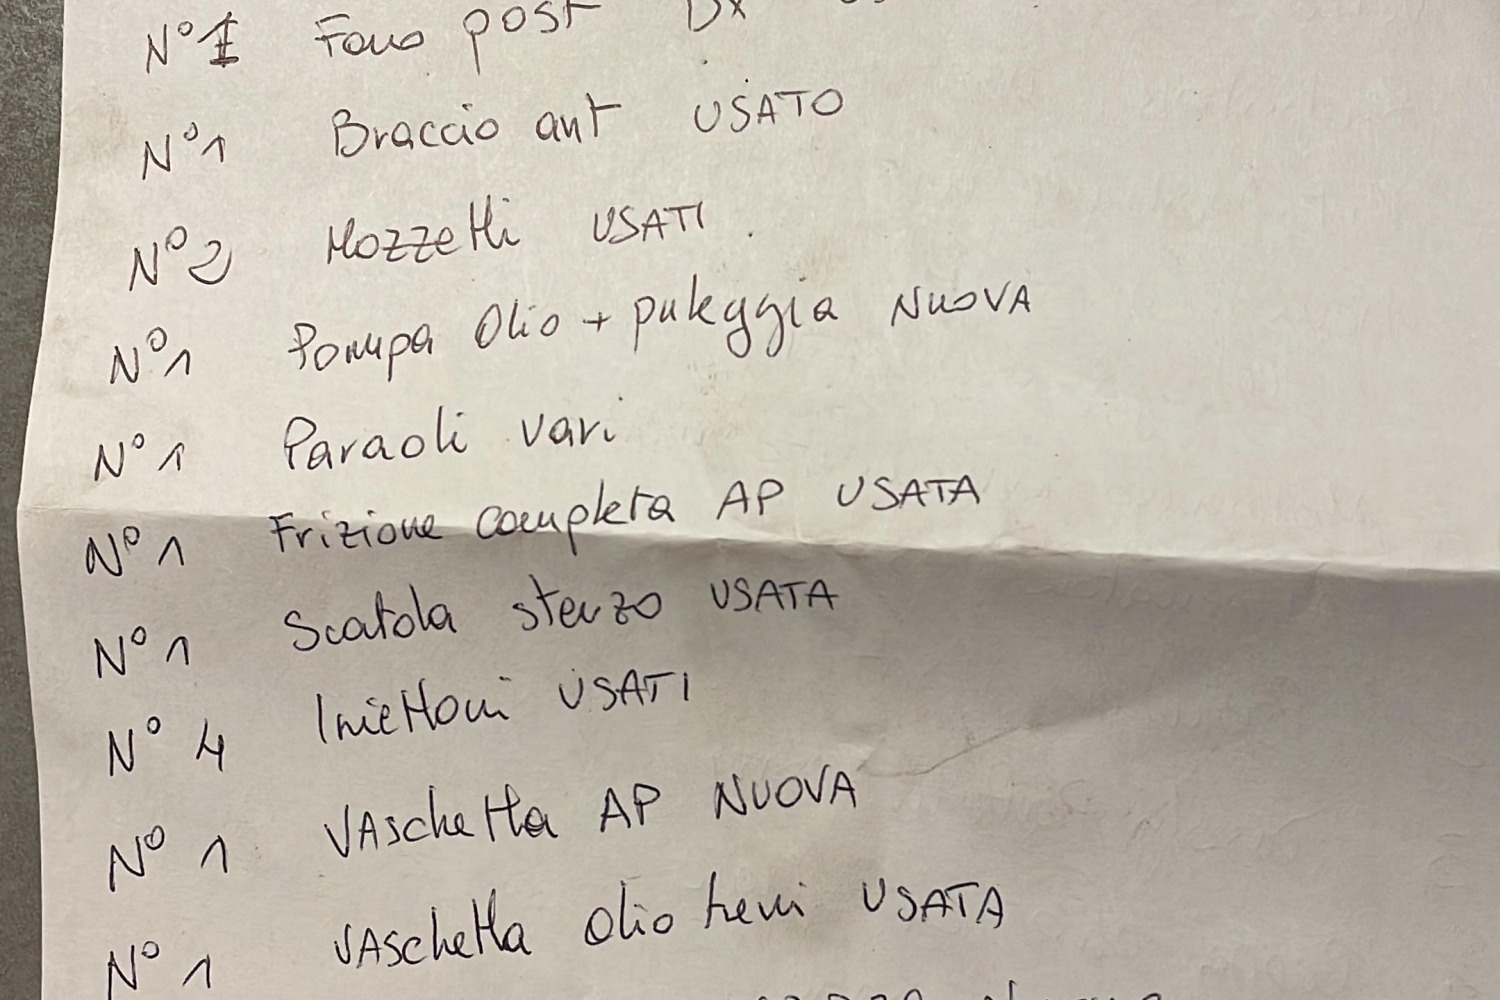 N°1 Faro post Dx
N°1 Braccio ant USATO
N°2 Mozzetti USATI
N°1 Pompa Olio + puleggia NUOVA
N°1 Paraoli vari
N°1 Frizione completa AP USATA
N°1 Scatola sterzo USATA
N°4 Iniettori USATI
N°1 VAschetta AP NUOVA
N°1 VAschetta Olio freni USATA